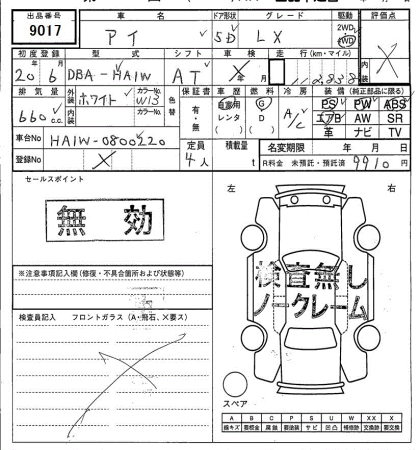 出品番号 車名 ドア形状 グレード 駆動 評価点
9017 アイ 5D LX 2WD 4WD X
初度登録 型式 シフト 車検 走行(km・マイル)
20年6月 DBA-HA1W AT X年 月 112,838
排気量 外装 カラーNo. 色替 保証書 車歴 燃料 冷房 装備(純正部品に限る)
660c.c. ホワイト W13 有・無 自家用 G A/C PS PW ABS
内装 カラーNo. レンタ D エアB AW SR
( ) ( ) 革 ナビ TV
車台No HA1W-0800220 定員 積載量 名変期限 年 月 日
登録No X 4人 t R料金 未預託・預託済 9910円
セールスポイント 左 右
無効
※注意事項記入欄(修復・不具合箇所および状態等)
検査無し
ノークレーム
検査員記入 フロントガラス(A・飛石、X要ス)
スペア
A B C P S U W X XX
線キズ 要板金 腐蝕 要塗装 サビ 凹凸 補修跡 交換跡 要交換